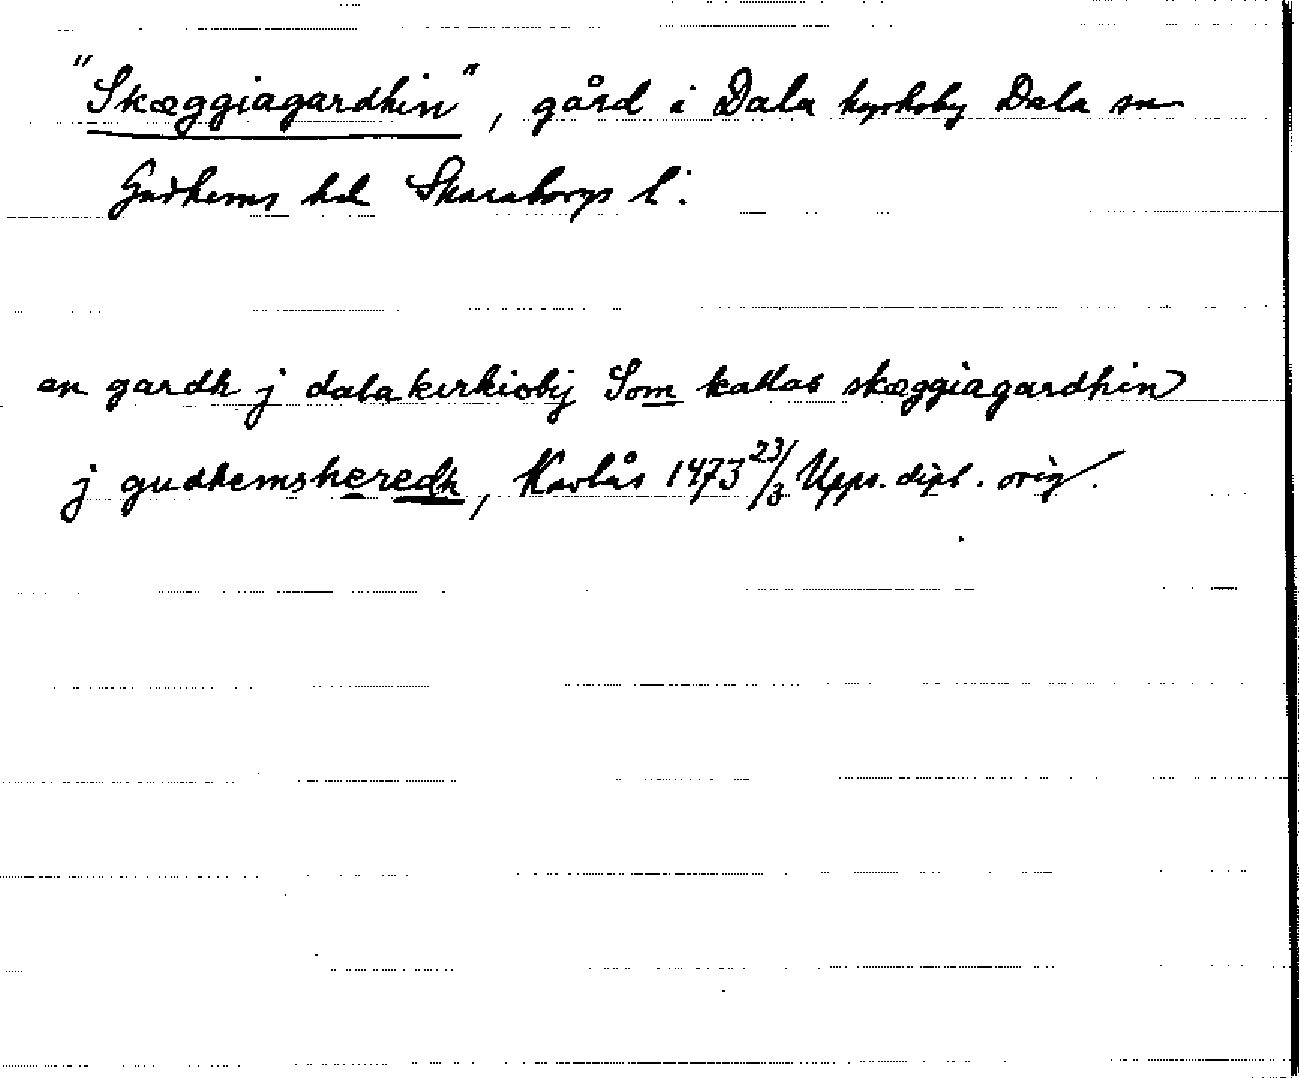 "Skæggiagardhin", gård i Dala kyrkoby Dala sn
Gudhems hd Skaraborgs l.
en gardh j dala kirkioby Som kallas skæggiagardhin
j gudhemsheredh, Kavlås 1473 23/3 Upps. dipl. orig.